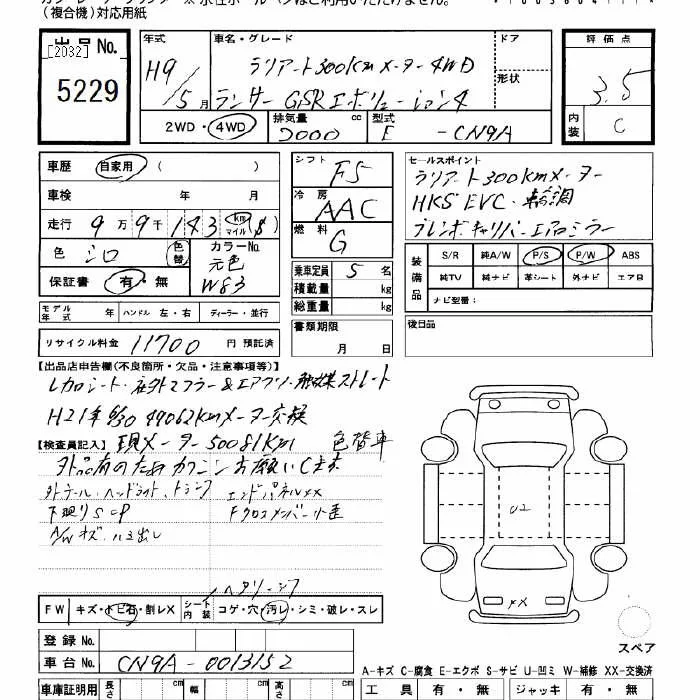 (複合機)対応用紙
出品No.
[2032]
5229
年式
H9/5月
車名・グレード
ラリアート300kmメーター4WD
ランサーGSRエボリューション4
ドア
形状
2WD・4WD
排気量
2000 cc
型式
E - CN9A
評価点
3.5
内装
C
車歴 自家用 ( )
車検 年 月
走行 9万9千143 km マイル ($)
色 シロ 色替
カラーNo.
元色
W83
保証書 有・無
モデル年式 年 ハンドル 左・右 ディーラー・並行
リサイクル料金 11700 円 預託済
シフト F5
冷房 AAC
燃料 G
乗車定員 5 名
積載量 kg
総重量 kg
書類期限
月 日
セールスポイント
ラリアート300kmメーター
HKS EVC・輪調
ブレンボキャリパーエアロミラー
装備品
S/R 純A/W P/S P/W ABS
純TV 純ナビ 革シート 外ナビ エアB
ナビ型番:
後日品
【出品店申告欄(不良箇所・欠品・注意事項等)】
レカロシート・社外マフラー&エアクリ・触媒ストレート
H21年6/30 49062kmメーター交換
【検査員記入】現メーター50081km 色替車
外品有のためカクニンお願いします
外テール・ヘッドライト、トランク エンドパネルXX
下廻りS=P Fクロスメンバー小歪
A/Wキズ・ハミ出し
U2
FX
FW キズ・トビ石・割レX シート内装 コゲ・穴・汚レ・シミ・破レ・スレ
スペア
登録No.
車台No. CN9A-0013152
A-キズ C-腐食 E-エクボ S-サビ U-凹ミ W-補修 XX-交換済
車庫証明用 長さ cm 幅 cm 高さ cm
工具 有・無 ジャッキ 有・無